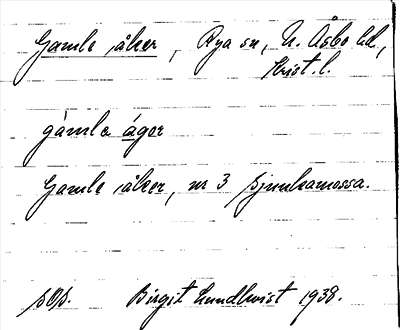 Gamle åker, Rya sn, N. Åsbo hd,
Krist. l.
gàmlɛ ágor
Gamle åker, nr 3 Sjunkamossa.
sOs. Birgit Lundkvist 1938.